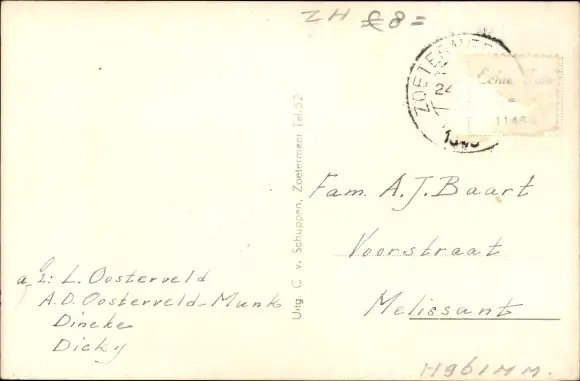 ZH £8=
ZOETERMEER
24
Echte Foto
1146
Uitg. C. v. Schuppen, Zoetermeer Tel.52
Fam. A.J. Baart
Voorstraat
Melissant
L. Oosterveld
A.D. Oosterveld-Munk
Dineke
Dicky
H961MM.